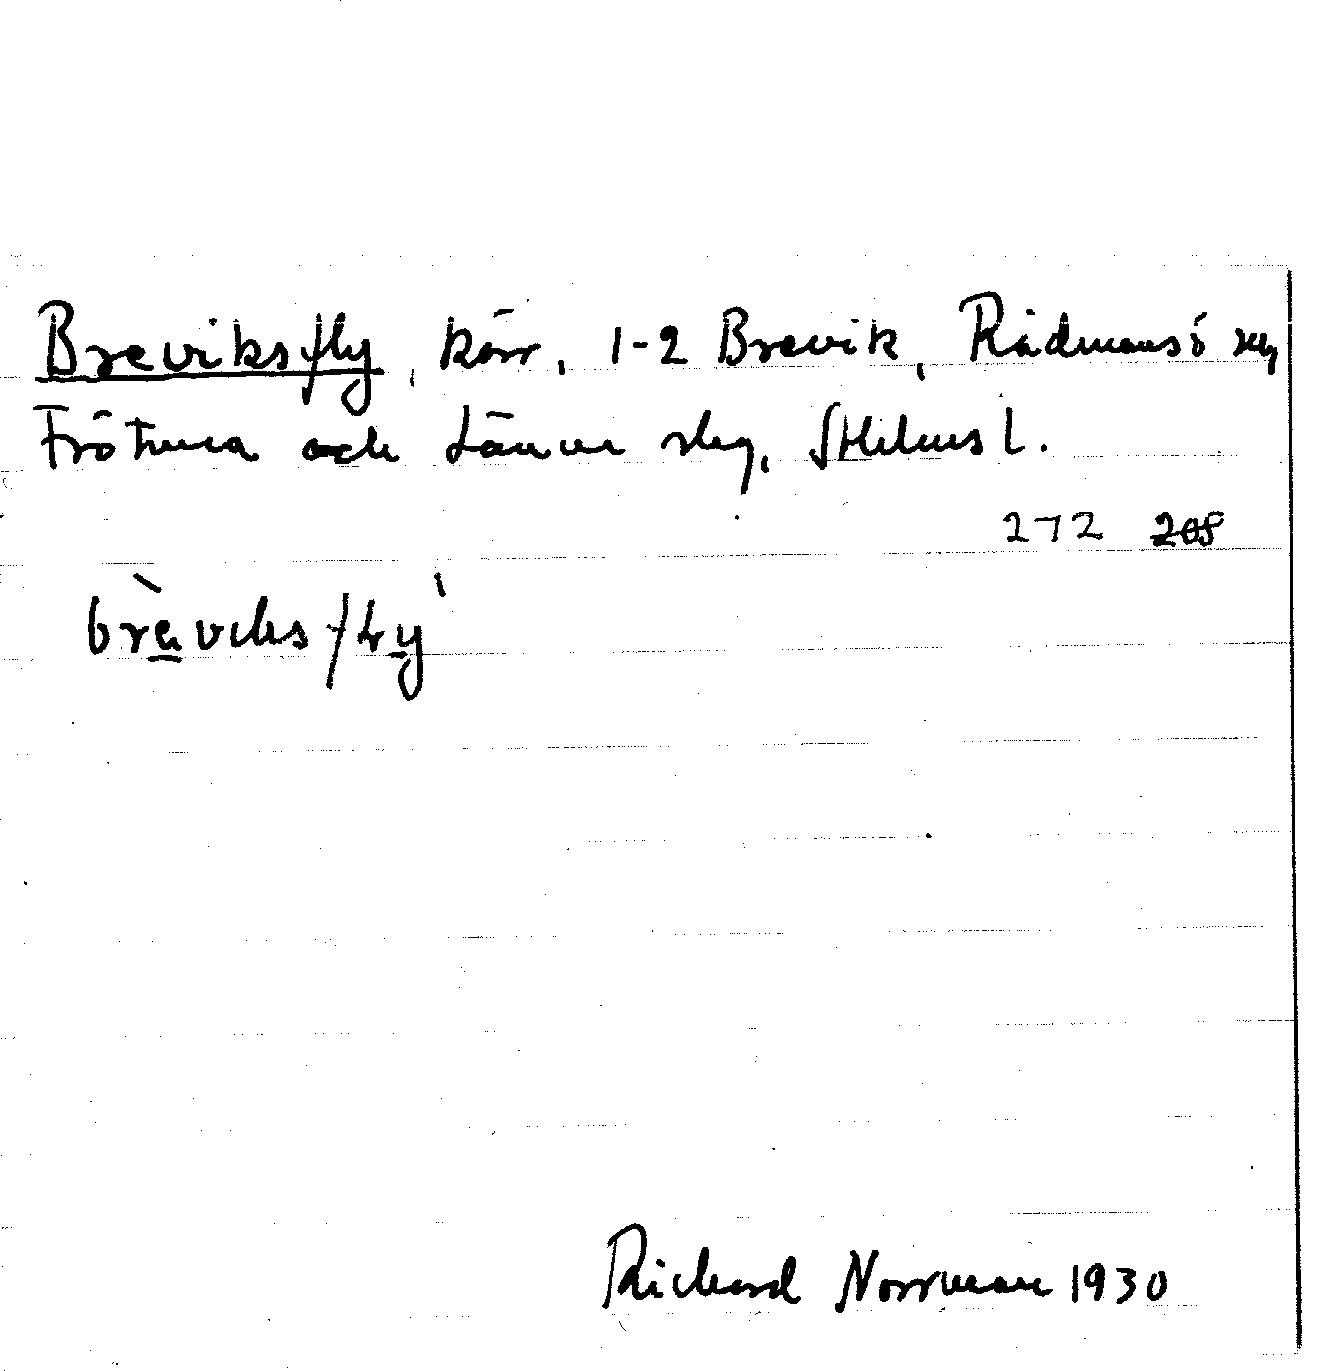 Breviksfly, kärr, 1-2 Brevik, Rådmansö sn,
Frötuna och Länna skg, Sthlms l.
272 208
brèviks fly
Richard Norrman 1930